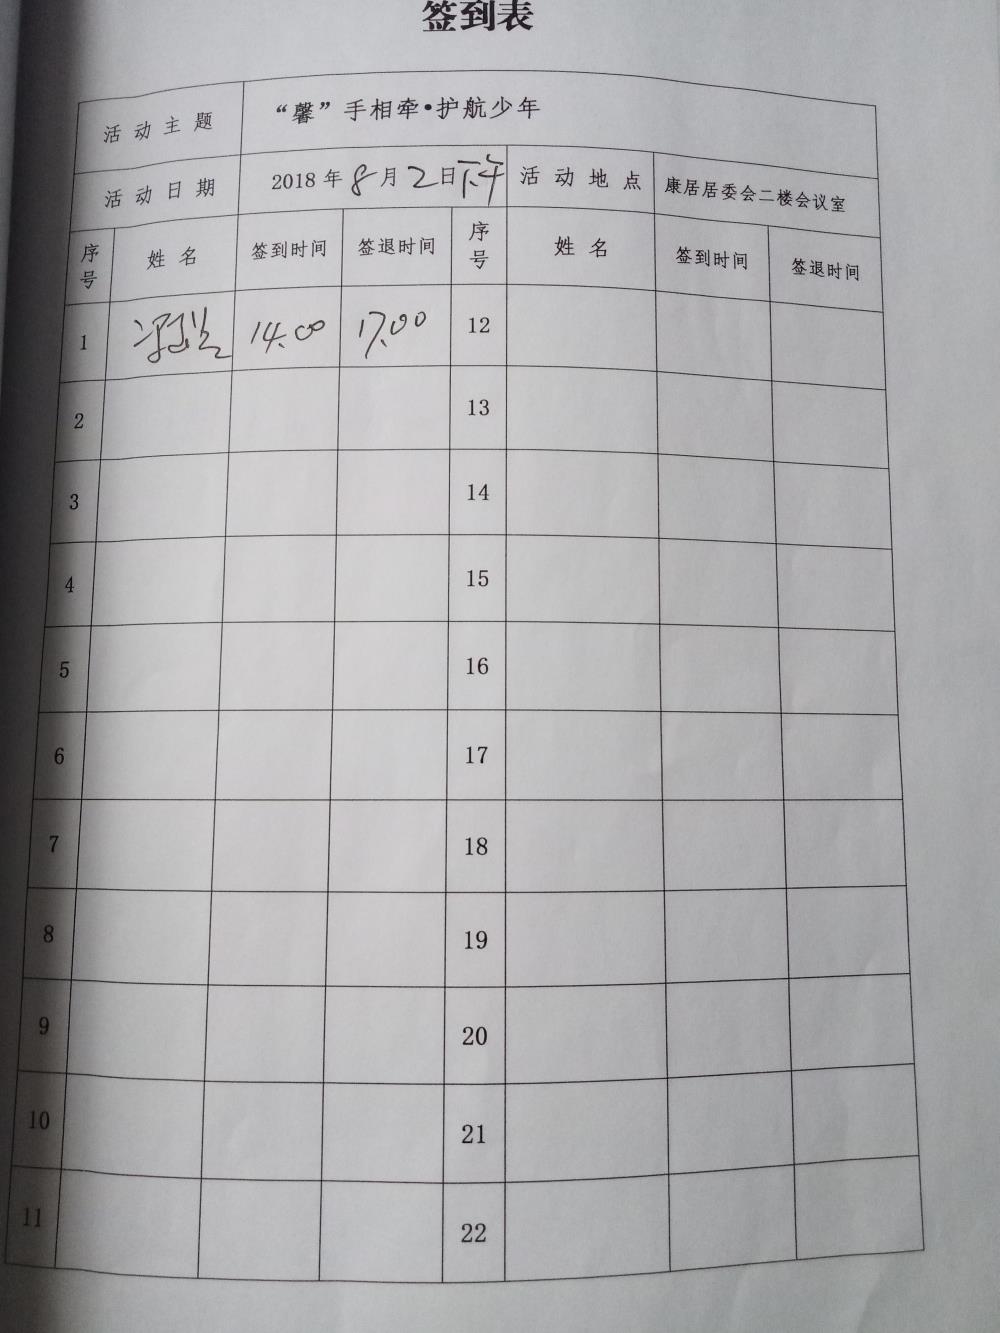 签到表
活动主题 “馨”手相牵•护航少年
活动日期 2018年8月2日下午 活动地点 康居居委会二楼会议室
序号 姓名 签到时间 签退时间 序号 姓名 签到时间 签退时间
1 14.00 17.00 12
2 13
3 14
4 15
5 16
6 17
7 18
8 19
9 20
10 21
11 22